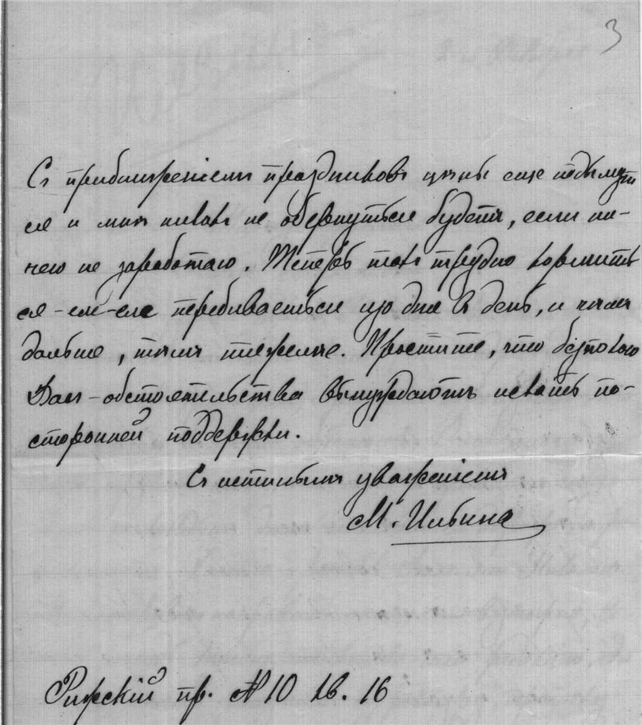 3
Съ приближеніемъ праздниковъ цѣны еще подымут-
ся и мнѣ никакъ не обернуться будетъ, если ни-
чего не заработаю. Теперь такъ трудно кормить-
ся - еле-еле перебиваешься изо дня въ день, и чѣмъ
дальше, тѣмъ тяжелѣе. Простите, что безпокою
Васъ - обстоятельства вынуждаютъ искать по-
сторонней поддержки.
Съ истиннымъ уваженіемъ
М. Ильина
Рижскій пр. № 10 кв. 16